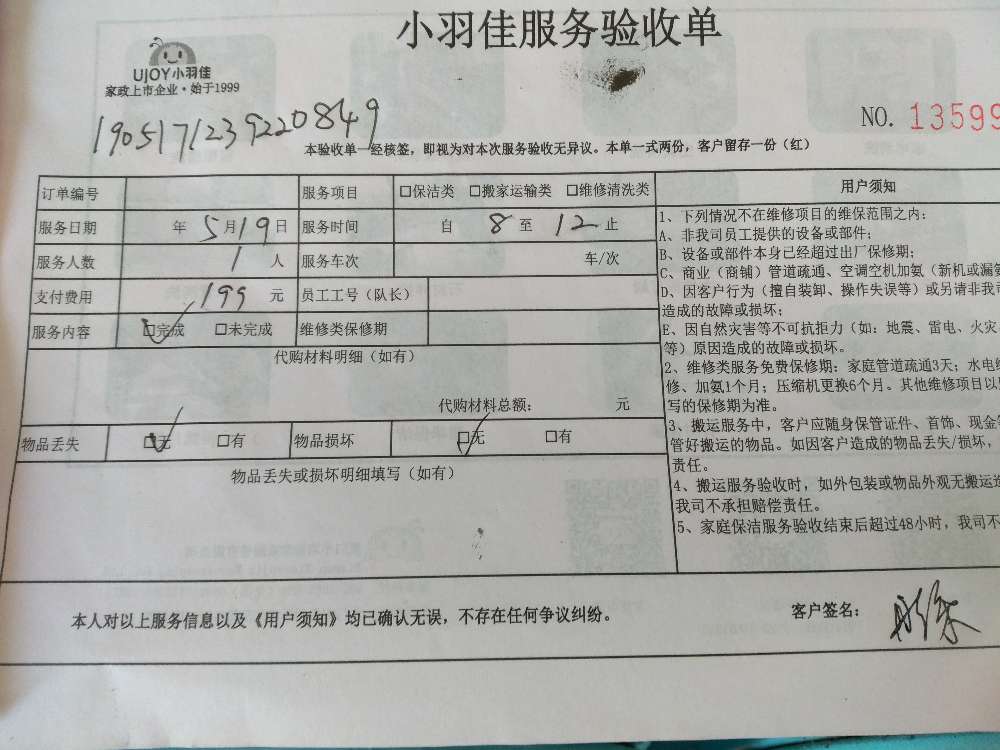 小羽佳服务验收单
UJOY小羽佳
家政上市企业·始于1999
190517123922 0849
NO. 13599
本验收单一经核签，即视为对本次服务验收无异议。本单一式两份，客户留存一份（红）
订单编号 服务项目 □保洁类 □搬家运输类 □维修清洗类
服务日期 年 5月19日 服务时间 自 8 至 12 止
服务人数 1 人 服务车次 车/次
支付费用 199 元 员工工号（队长）
服务内容 ☑完成 □未完成 维修类保修期
代购材料明细（如有）
代购材料总额： 元
物品丢失 ☑无 □有 物品损坏 ☑无 □有
物品丢失或损坏明细填写（如有）
用户须知
1、下列情况不在维修项目的维保范围之内：
A、非我司员工提供的设备或部件；
B、设备或部件本身已经超过出厂保修期；
C、商业（商铺）管道疏通、空调空机加氨（新机或漏氨
D、因客户行为（擅自装卸、操作失误等）或另请非我司
造成的故障或损坏；
E、因自然灾害等不可抗拒力（如：地震、雷电、火灾、
等）原因造成的故障或损坏。
2、维修类服务免费保修期：家庭管道疏通3天；水电维
修、加氨1个月；压缩机更换6个月。其他维修项目以
写的保修期为准。
3、搬运服务中，客户应随身保管证件、首饰、现金
管好搬运的物品。如因客户造成的物品丢失/损坏，
责任。
4、搬运服务验收时，如外包装或物品外观无搬运
我司不承担赔偿责任。
5、家庭保洁服务验收结束后超过48小时，我司不
本人对以上服务信息以及《用户须知》均已确认无误，不存在任何争议纠纷。
客户签名：